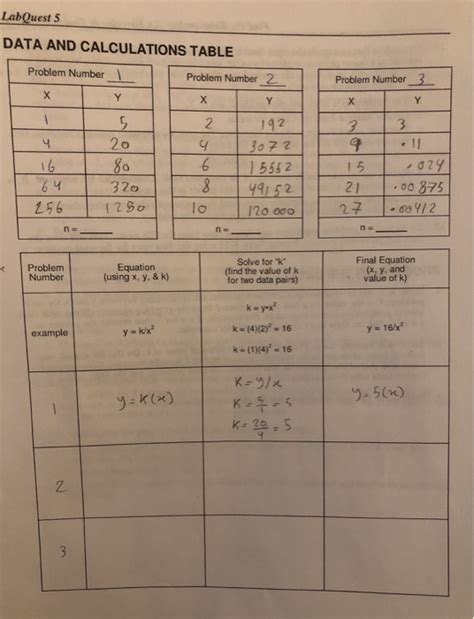 LabQuest 5
DATA AND CALCULATIONS TABLE
Problem Number 1
X Y
1 5
4 20
16 80
64 320
256 1280
n =
Problem Number 2
X Y
2 192
4 3072
6 15552
8 49152
10 120 000
n =
Problem Number 3
X Y
3 3
9 .11
15 .024
21 .00875
27 .00412
n =
Problem Number
Equation (using x, y, & k)
Solve for "k" (find the value of k for two data pairs)
Final Equation (x, y, and value of k)
example
y = k/x²
k = y•x²
k = (4)(2)² = 16
k = (1)(4)² = 16
y = 16/x²
1
y = K(x)
K = y/x
K = 5/1 = 5
K = 20/4 = 5
y = 5(x)
2
3